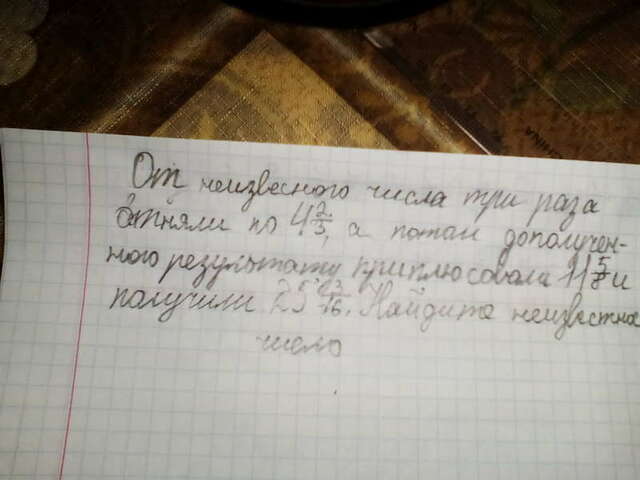 От неизвесного числа три раза
отняли по 4 2/3, а потом дополучен-
ного результату приплюсовали 11 5/8 и
получили 25 3/16. Найдите неизвестное
число